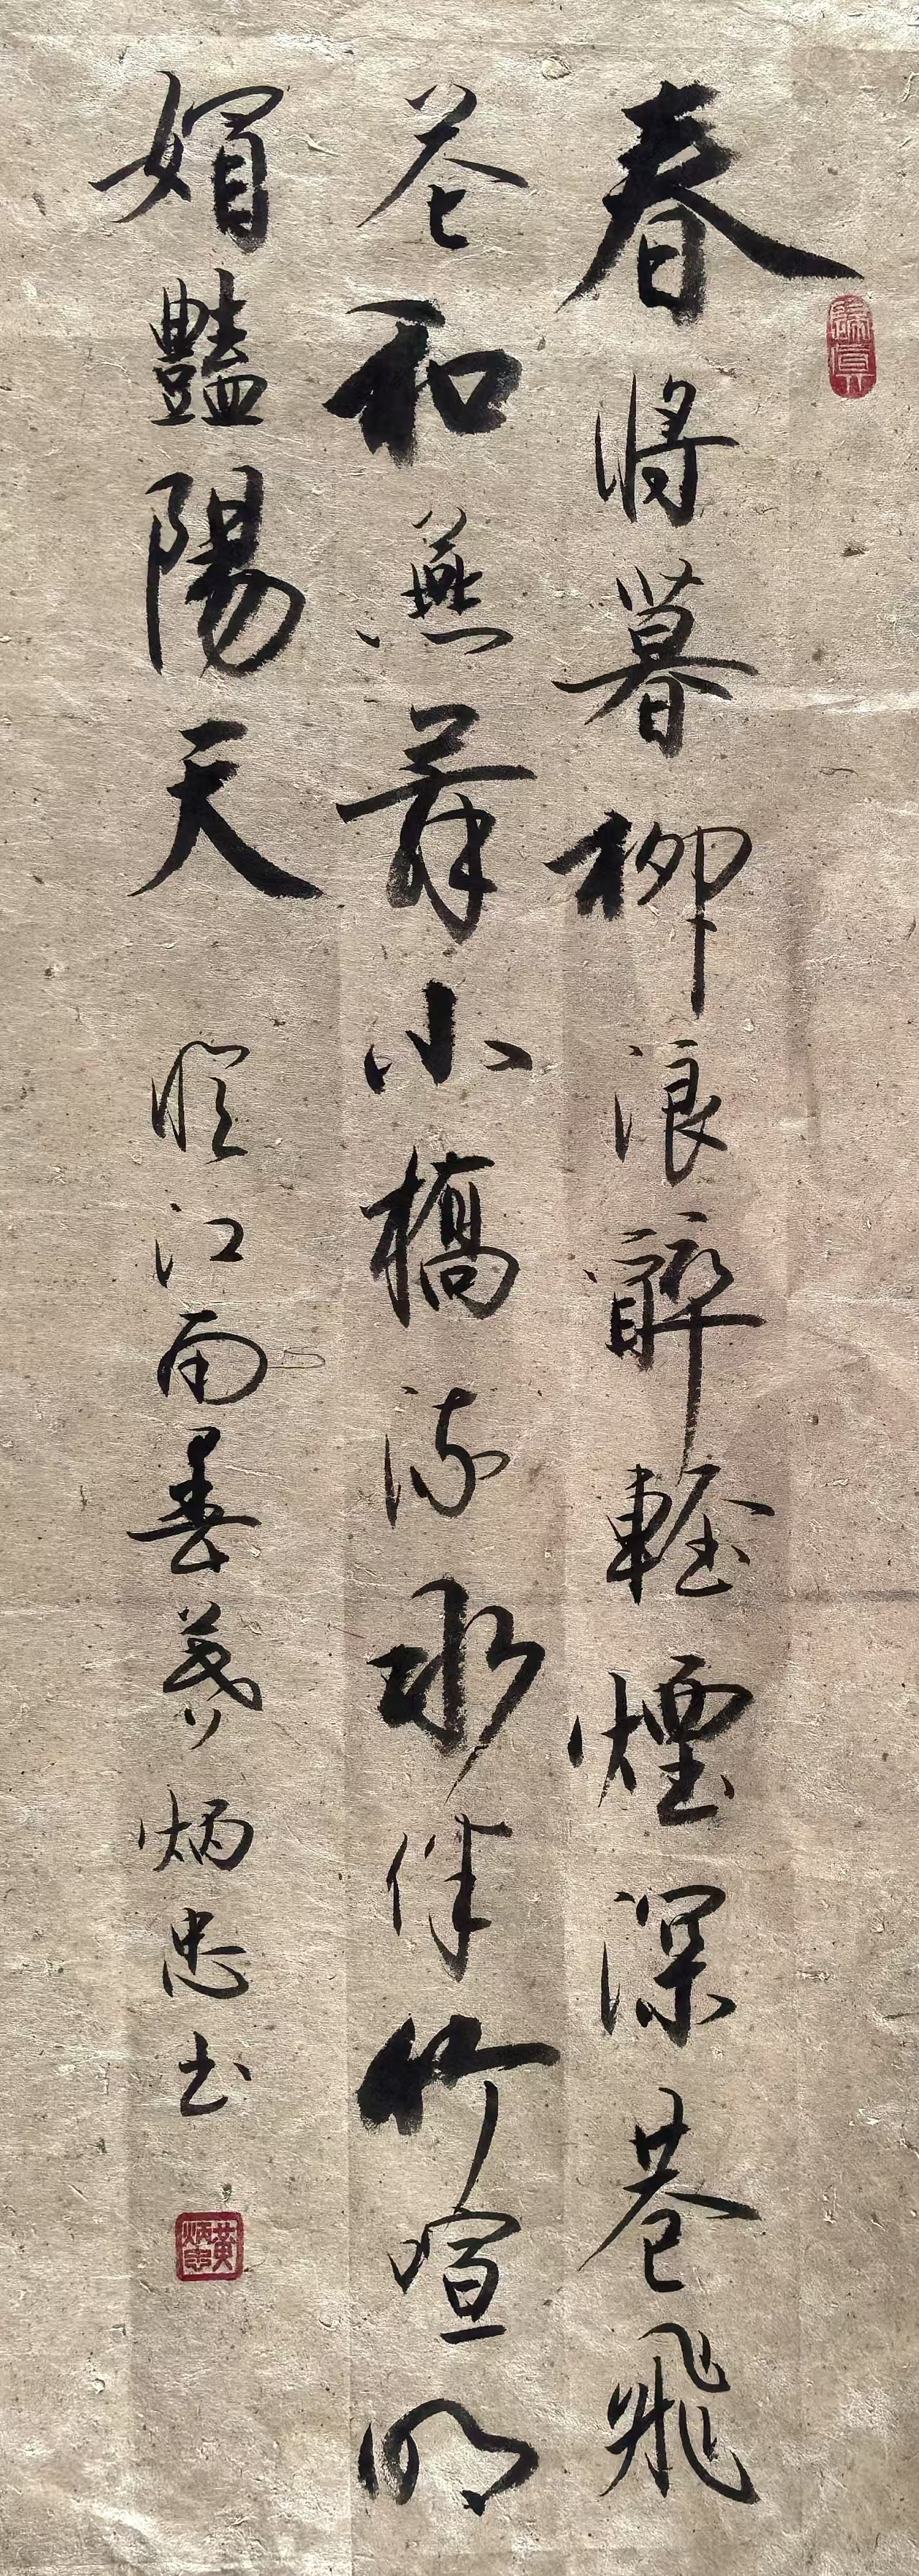 春將暮柳浪醉輕煙深巷飛
花和燕舞小橋流水伴竹喧明
媚豔陽天
憶江南春暮炳忠书
黄炳忠